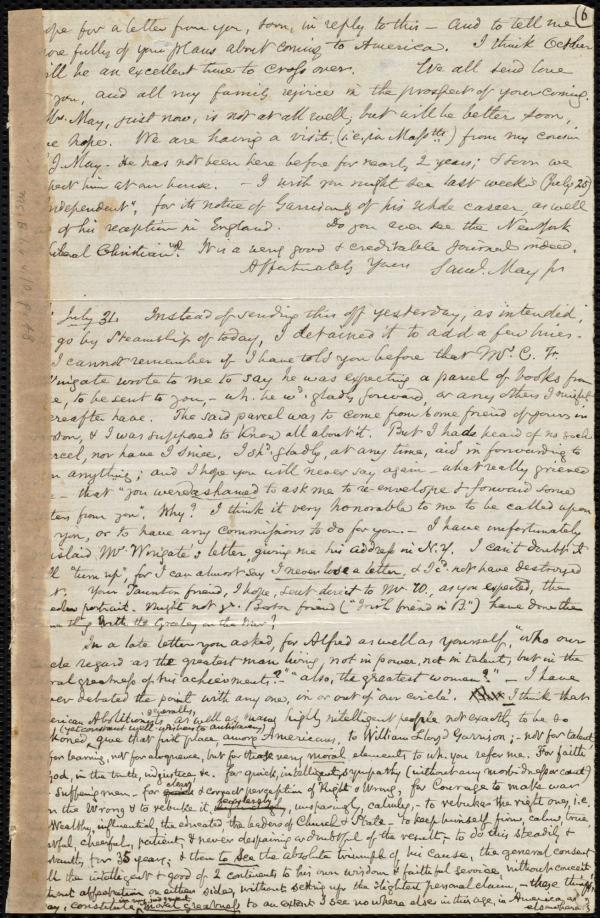 6
ope for a letter from you, soon, in reply to this — and to tell me
ore fully of your plans about coming to America. I think October
ill be an excellent time to cross over. We all send love
you, and all my family rejoice in the prospect of your coming.
Mrs. May, just now, is not at all well, but will be better soon,
we hope. We are having a visit, (i.e. in Masstts) from my cousin
J. May. He has not been here before for nearly 2 years; & soon we
pect him at our house. — I wish you might see last week's (July 25)
ndependent", for its notice of Garrison, & of his whole career, as well
of his reception in England. Do you ever see the New York
iberal Christian"? It is a very good & creditable Journal indeed.
Affectionately Yours Saml. May Jr
July 31. Instead of sending this off yesterday, as intended,
go by Steamship of today, I detained it to add a few lines.
I cannot remember if I have told you before that Mr. C. F.
Wingate wrote to me to say he was expecting a parcel of books from
e, to be sent to you, — wh. he wd. gladly forward, or any others I might
ereafter have. The said parcel was to come from some friend of yours in
oston, & I was supposed to know all about it. But I had heard of no such
rcel, nor have I since. I shd. gladly, at any time, aid in forwarding to
u anything; and I hope you will never say again — what really grieved
e — that "you were ashamed to ask me to re-envelope & forward some
ters from you". Why? I think it very honorable to me to be called upon
you, or to have any commissions to do for you. — I have unfortunately
islaid Mr. Wingate's letter, giving me his address in N.Y. I can't doubt it
ll "turn up", for I can almost say I never lose a letter, & I cd. not have destroyed
t. Your Taunton friend, I hope, sent direct to Mr. W., as you expected, the
portrait. Might not yr. Boston friend ("Irish friend in B.") have done the
me thing with the Greeley on the War?
In a late letter you asked, for Alfred as well as yourself, "who our
cle regard as the greatest man living, not in power, not in talents, but in the
ral greatness of his achievements?" "also, the greatest woman?" — I have
ver debated the point with any one, in or out of "our circle". I think that
erican Abolitionists, generally, as well as many highly intelligent people not exactly to be so
(yet constant well-wishers to abolition)
tioned, give that first place, among Americans, to William Lloyd Garrison; — not for talent,
for learning, not for eloquence, but for those very moral elements to wh. you refer me. For faith
God, in the truth, in justice &c. for quick, intelligent, sympathy (without any morbidness or cant)
suffering men — for clear & correct perception of Right & Wrong, for Courage to make war
n the Wrong & to rebuke it fearlessly, unsparingly, calmly, — to rebuke the right ones, i.e.
Wealthy, influential, the educated, the leaders of Church & State. To keep himself firm, calm, true
ful, cheerful, patient, & never despairing or doubtful of the result; — to do this steadily &
tantly, for 35 years, & then to see the absolute triumph of his cause, the general consent
ll the intelligent & good of 2 continents to his own wisdom & faithful service, without conceit,
hout affectation on either side, without setting up the slightest personal claim, — these things
ay, constitute, in my judgment, moral greatness to an extent I see no where else in this age, in America, or
elsewhere.